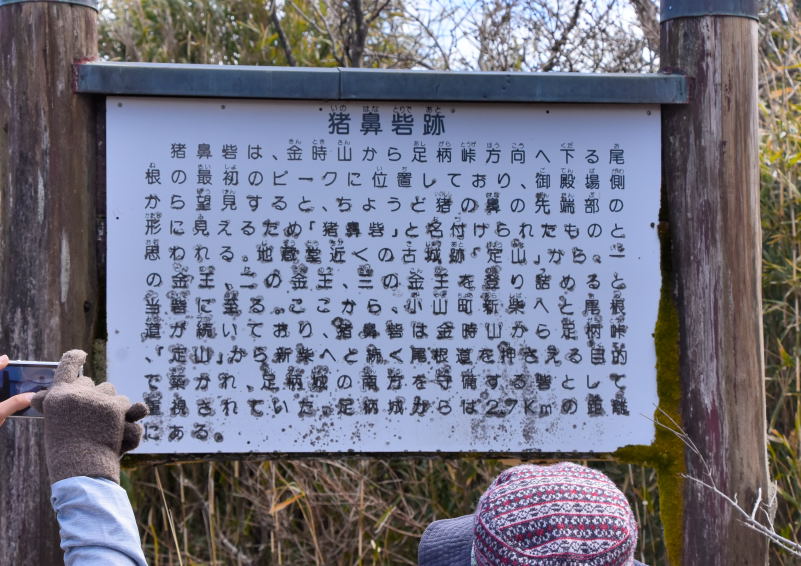 猪鼻砦跡
猪鼻砦は、金時山から足柄峠方向へ下る尾
根の最初のピークに位置しており、御殿場側
から望見すると、ちょうど猪の鼻の先端部の
形に見えるため「猪鼻砦」と名付けられたものと
思われる。地蔵堂近くの古城跡「定山」から。一
の釜王、二の釜王、三の釜王を登り詰めると
当砦に至る。ここから、小山町新柴へと尾根
道が続いており、猪鼻砦は金時山から足柄峠
、「定山」から新柴へと続く尾根道を押さえる目的
で築かれ、足柄城の南方を守備する砦として
重視されていた。足柄城からは2.7Kmの距離
にある。